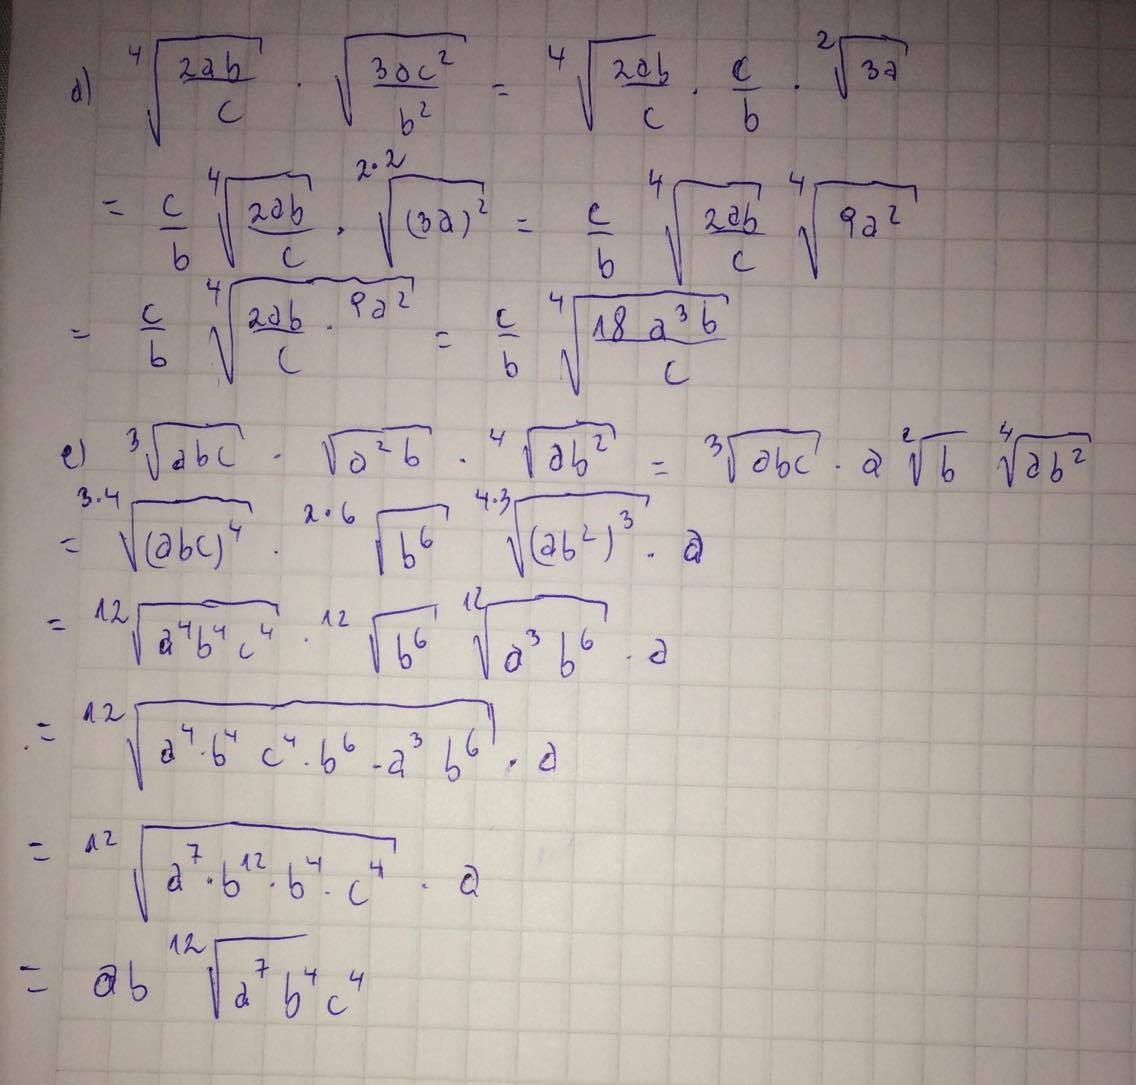 d) ⁴√(2ab/c) · √(3ac²/b²) = ⁴√(2ab/c) · c/b · ²√(3a)
= c/b ⁴√(2ab/c) · ²·²√((3a)²) = c/b ⁴√(2ab/c) ⁴√(9a²)
= c/b ⁴√(2ab/c · 9a²) = c/b ⁴√(18 a³b/c)
e) ³√(abc) · √(a²b) · ⁴√(ab²) = ³√(abc) · a ²√b ⁴√(ab²)
= ³·⁴√((abc)⁴) · ²·⁶√(b⁶) ⁴·³√((ab²)³) · a
= ¹²√(a⁴b⁴c⁴) · ¹²√(b⁶) ¹²√(a³b⁶) · a
= ¹²√(a⁴·b⁴ c⁴·b⁶·a³ b⁶) · a
= ¹²√(a⁷·b¹²·b⁴·c⁴) · a
= ab ¹²√(a⁷b⁴c⁴)